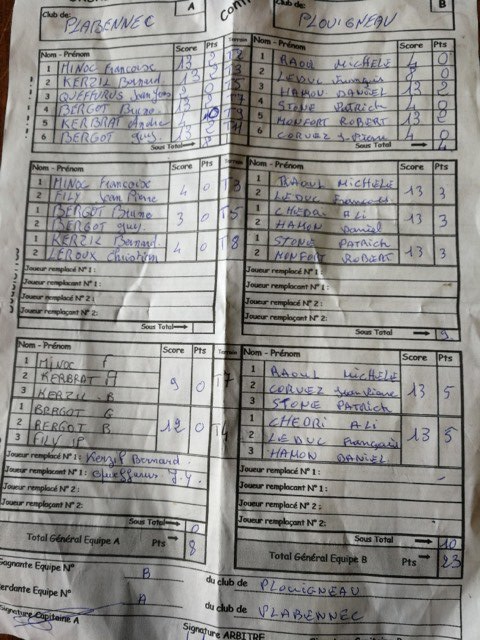 Club de: PLABENNEC A
Club de: PLOUIGNEAU B
Nom - Prénom Score Pts Terrain
1 MINOC Françoise 13 2 T2
2 KERZIL Bernard 13 2
3 QUEFFURUS Jean Yves
4 BERGOT Bruno 13 2
5 KERBRAT André 4
6 BERGOT Guy 13 2
Sous Total 8
Nom - Prénom Score Pts
1 RAOUL MICHELE 4 0
2 LEDUC François 8 0
3 HAMON DANIEL 13 2
4 STONE PATRICH 4 0
5 MONFORT ROBERT 13 2
6 CORVEZ J. Pierre 0
Sous Total 4
Nom - Prénom
1 MINOC Françoise 4 0 T3
2 FILY Jean Pierre
1 BERGOT Bruno 3 0 T5
2 BERGOT Guy
1 KERZIL Bernard 4 0 T8
2 LEROUX Christian
Joueur remplacé N° 1 :
Joueur remplaçant N° 1 :
Joueur remplacé N° 2 :
Joueur remplaçant N° 2 :
Sous Total
Nom - Prénom
1 RAOUL MICHELE 13 3
2 LEDUC François
1 CHEDRI ALI 13 3
2 HAMON Daniel
1 STONE PATRICH 13 3
2 MONFORT ROBERT
Joueur remplacé N° 1 :
Joueur remplaçant N° 1 :
Joueur remplacé N° 2 :
Joueur remplaçant N° 2 :
Sous Total 9
Nom - Prénom Score Pts Terrain
1 MINOC F
2 KERBRAT A 9 0 T7
3 KERZIL B
1 BERGOT G
2 BERGOT B 12 0 T4
3 FILY JP
Joueur remplacé N° 1 : Kerzil Bernard
Joueur remplaçant N° 1 : Queffurus J.Y.
Joueur remplacé N° 2 :
Joueur remplaçant N° 2 :
Sous Total 0
Total Général Equipe A Pts 8
Nom - Prénom Score Pts
1 RAOUL MICHELE
2 CORVEZ 13 5
3 STONE PATRICH
1 CHEDRI ALI
2 LEDUC François 13 5
3 HAMON DANIEL
Joueur remplacé N° 1 :
Joueur remplaçant N° 1 :
Joueur remplacé N° 2 :
Joueur remplaçant N° 2 :
Sous Total 10
Total Général Equipe B Pts 23
Gagnante Equipe N° B du club de PLOUIGNEAU
Perdante Equipe N° A du club de PLABENNEC
Signature Capitaine A
Signature ARBITRE